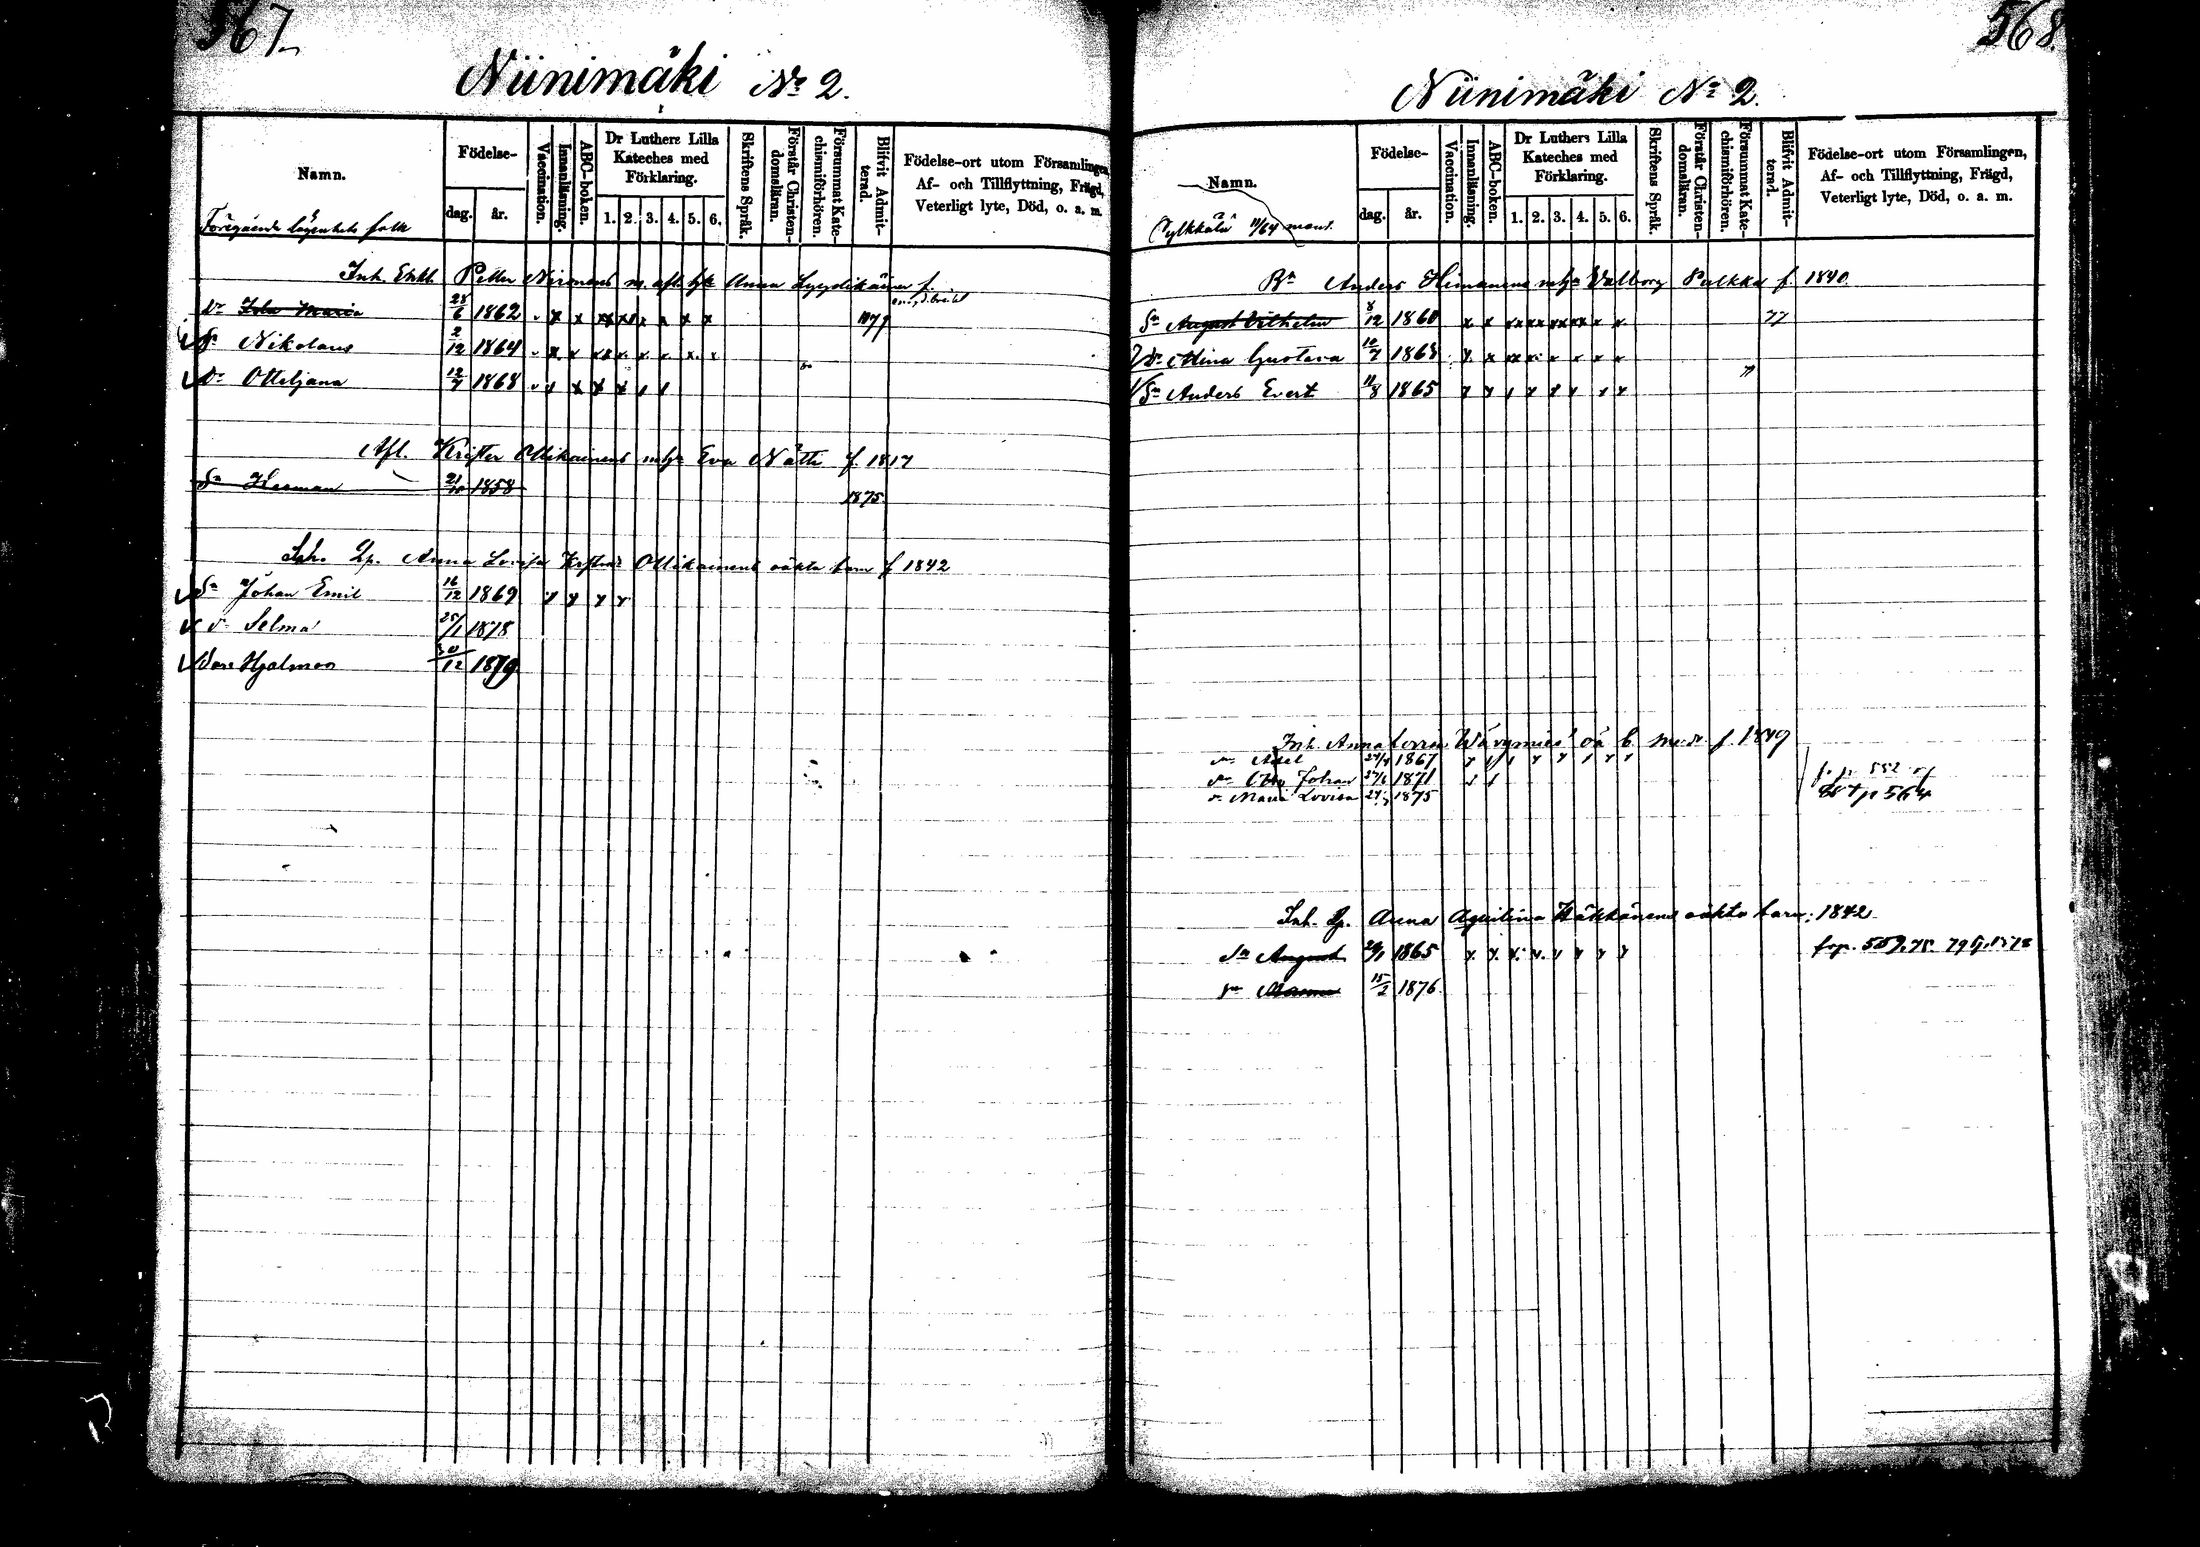 567
Niinimäki No 2.
Namn.
Födelse-
dag. år.
Vaccination.
Innanläsning.
ABC-boken.
Dr Luthers Lilla Kateches med Förklaring.
1. 2. 3. 4. 5. 6.
Skriftens Språk.
Förstår Christen-domsläran.
Försummat Kate-chismiförhören.
Blifvit Admit-terad.
Födelse-ort utom Församlingen,
Af- och Tillflyttning, Frägd,
Veterligt lyte, Död, o. a. m.
Föregående lägenhets folk
Inh. Enkl. Petter Nironens m. afl. h. Anna Lyydikäinen f.
Dr Maria 28/6 1862 x x xx xx x x x x 1879
Sn Nikolaus 2/12 1864 x x xx x x x x x
Dr Otteljana 12/7 1868 x x x x
Afl. Krister Ollikainens m hu Eva Nätti f. 1817
Sn Herman 21/10 1858 1875
Inh. Lp. Anna Lovisa Ollikainens oäkta barn f 1842
Sn Johan Emil 16/12 1869 x x x x
dr Selma 25/1 1878
Hjalmar 30/12 1879
568
Niinimäki No 2.
Namn.
Födelse-
dag. år.
Vaccination.
Innanläsning.
ABC-boken.
Dr Luthers Lilla Kateches med Förklaring.
1. 2. 3. 4. 5. 6.
Skriftens Språk.
Förstår Christen-domsläran.
Försummat Kate-chismiförhören.
Blifvit Admit-terad.
Födelse-ort utom Församlingen,
Af- och Tillflyttning, Frägd,
Veterligt lyte, Död, o. a. m.
Pylkkälä 11/64 mant.
Bn Anders Himanens m hu Valborg Pulkka f. 1840.
Sn August Vilhelm 8/12 1860 x x xx xx xx xx x x 77
Dr Mina Gustava 10/7 1863 x x xx x x x x x
Sn Anders Evert 11/8 1865 x x x x x x x
Inh. Anna Väyrynies oä b. f. 1849
sn Axel 1867
sn Otto Johan 1871
dr Maria Lovisa 1875
f. p. 552
p 564
Inh. Lp. Anna Aqvilina oäkta barn: 1842.
sn August 1865 x x x x x x x x
sn 15/2 1876